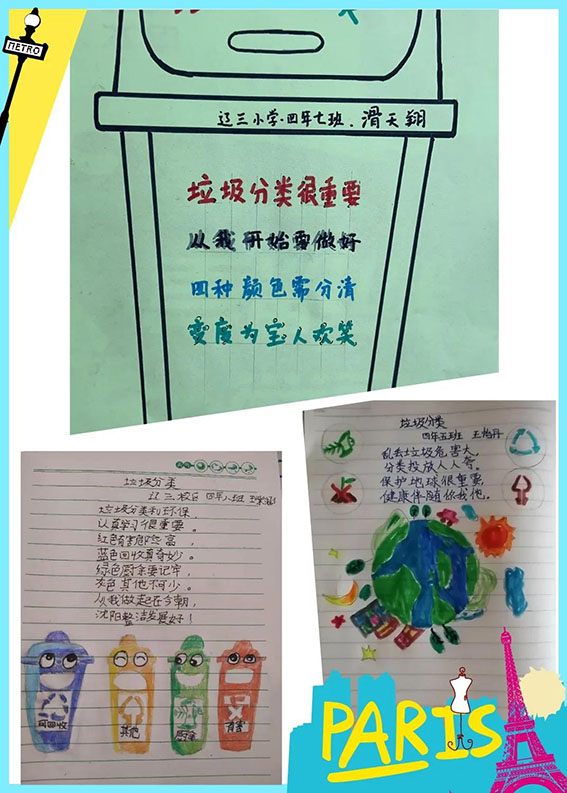 METRO
辽三小学·四年七班·滑天翔
垃圾分类很重要
从我开始要做好
四种颜色需分清
变废为宝人欢笑
垃圾分类
四年五班 王怡丹
乱丢垃圾危害大。
分类投放人人夸。
保护地球很重要
健康伴随你我他。
垃圾分类
辽三校区 四年八班
垃圾分类利环保
认真学习很重要。
红色有害那些高,
蓝色回收真奇妙。
绿色厨余要记牢,
灰色其他不可少。
从我做起在今朝,
沈阳整洁发展好!
可回收
其他
厨余
有害
PARIS